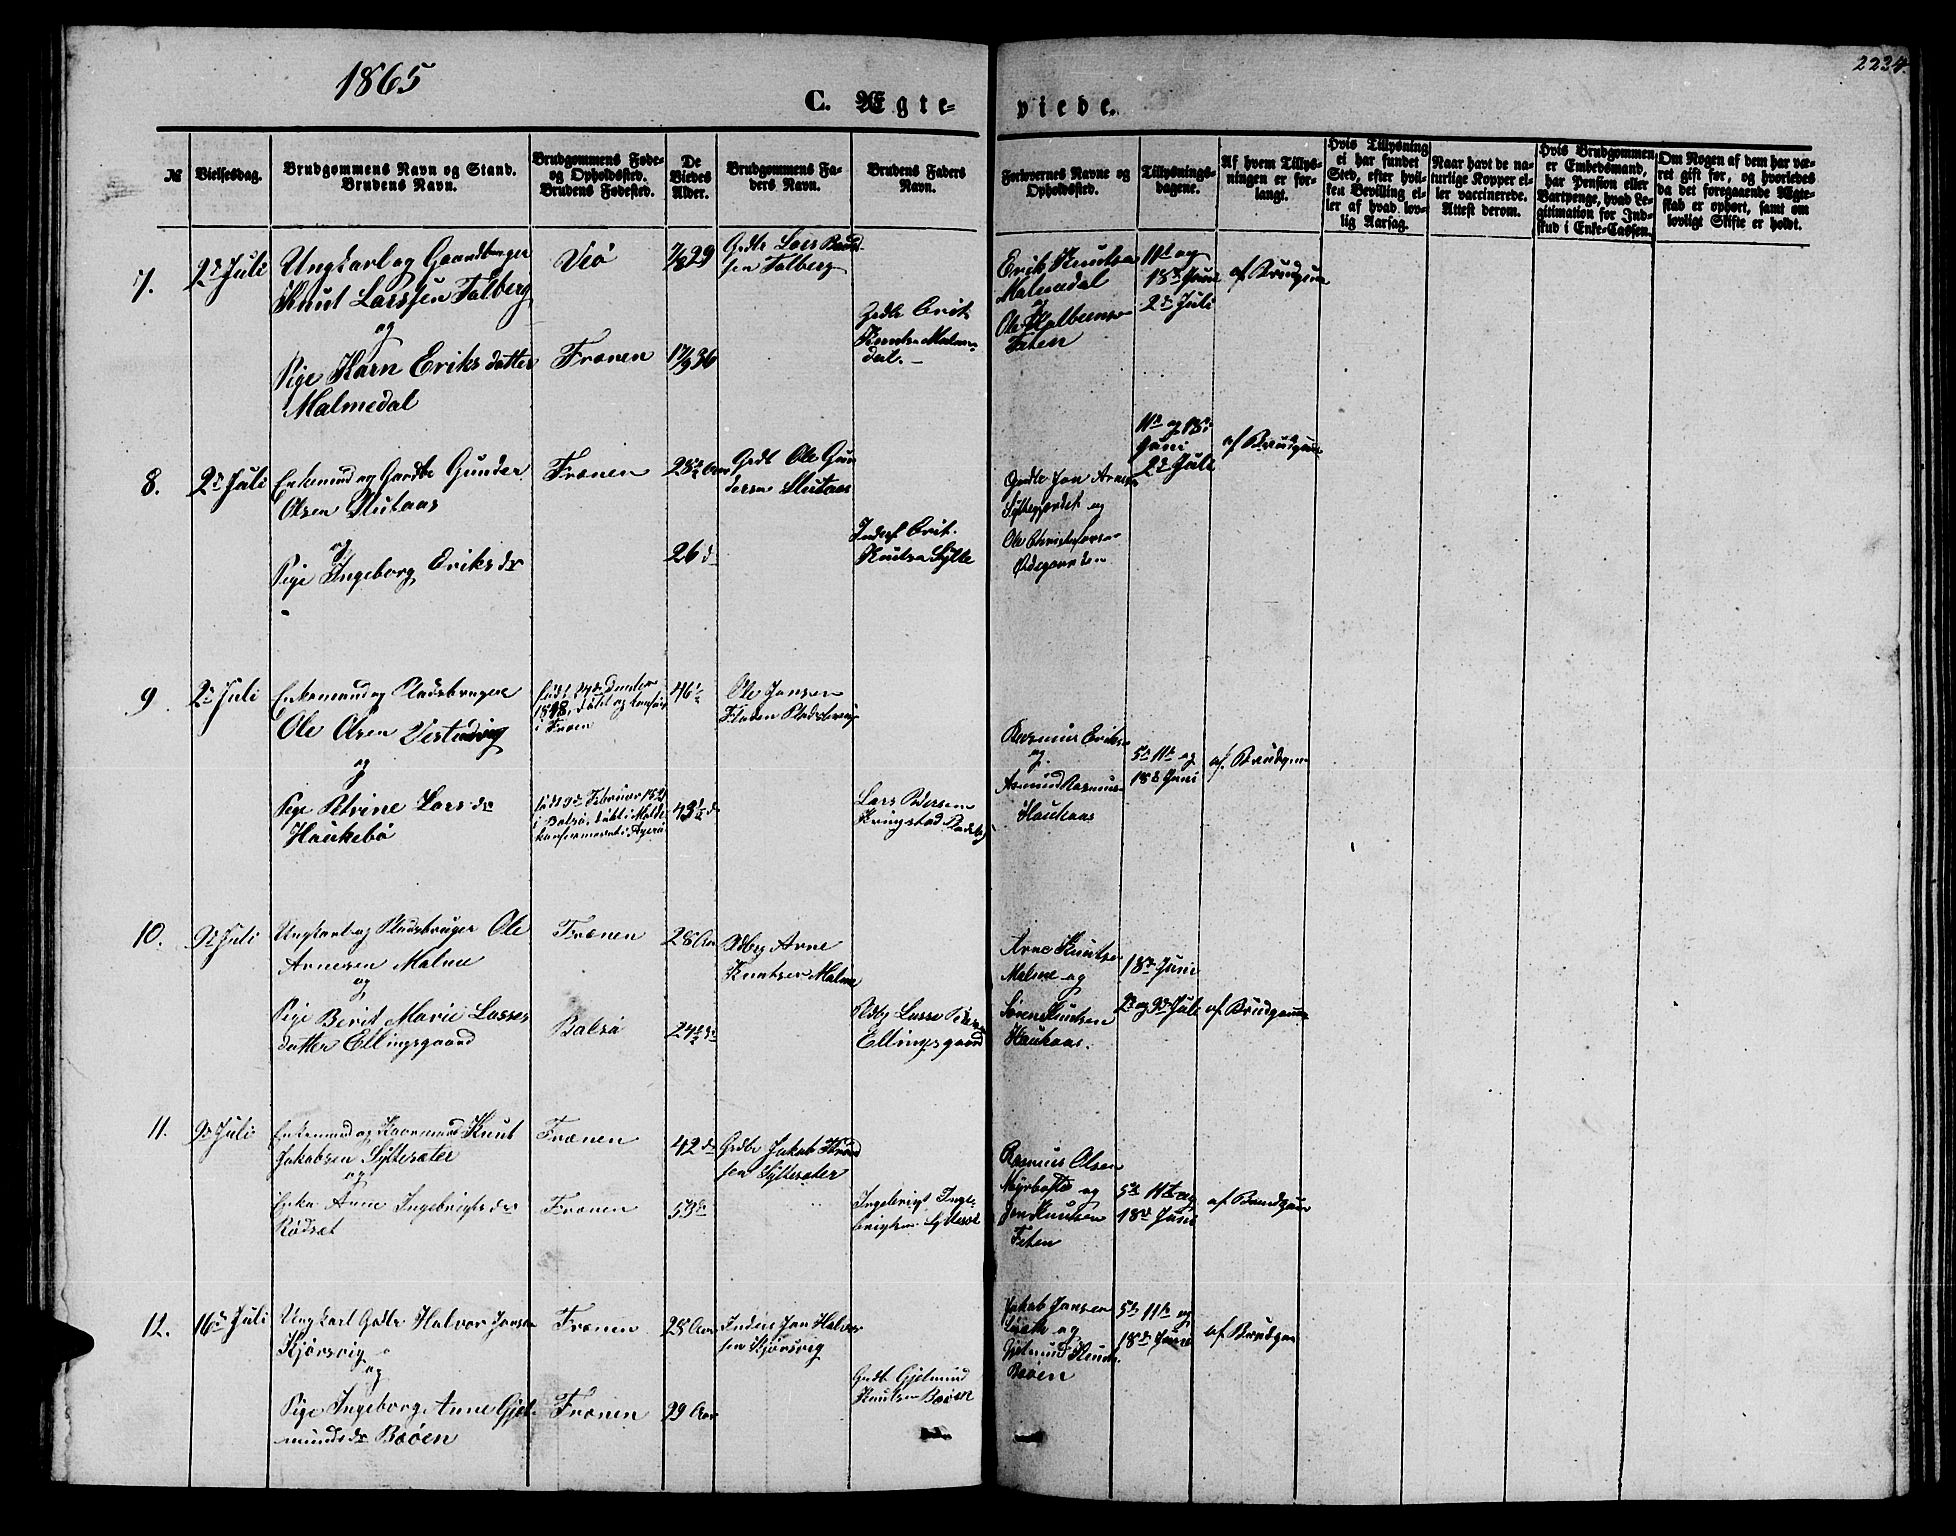 1865
2234.
C. Ægte-
viede.
№
Vielsesdag.
Brudgommens Navn og Stand.
Brudens Navn.
Brudgommens Føde-
og Opholdssted.
Brudens Fødested.
De
Viedes
Alder.
Brudgommens Fa-
ders Navn.
Brudens Faders
Navn.
Forlovernes Navne og
Opholdssted.
Tillysnings-
dagene.
Af hvem Tillys-
ningen er for-
langt.
Hvis Tillysning
ei har fundet
Sted, efter hvil-
ken Bevilling el-
ler af hvad lov-
lig Aarsag.
Naar havt de na-
turlige Kopper el-
ler vaccinerede.
Attest derom.
Hvis Brudgommen
er Embedsmand,
har Pension eller
Vartpenge, hvad Le-
gitimation for Ind-
skud i Enke-Cassen.
Om Nogen af dem har væ-
ret gift før, og hvorledes
da det foregaaende Ægte-
skab er ophørt, samt om
lovligt Skifte er holdt.
7.
2d Juli
Ungkarl og Gaardbruger
Knut Larssen Talberg
og
Pige Karn Eriksdatter
Malmedal
Veø
Frænen
7/8 29
17/9 36
Grdbr Lars
sen Talberg
Grdbr Erik
Knutsn Malme-
dal.
Erik Knutsn
Malmedal
og
Ole
Teten
11te og
18de Juni
2den Juli
af Brudgom
8.
2d Juli
Enkemand og Gardbr Gunder
Olsen Stutaas
og
Pige Ingeborg Eriksdr
Frænen
28½ Aar
26 do
Grdb Ole Gun
dersen Stutaas
Inderst Erik
Knutsn Sylte
Grdbr Jon Arnesn
Syltegjerdet og
Ole Christofersn
Ødegaarden
11te og 18de
Juni
2de Juli
af Brudgom
9
2d Juli
Enkemand og Pladsbruger
Ole Olsen Vestadvig
og
Pige Petrine Larsdr
Haukebø
født 14de
1818, døbt og
i Fræn
født 9de Februar 1821
i Bolsø, døbt i Molde
konfirmeret i Agerø
46½
43½ do
Ole Jansen
Pladsbrug
Lars Pedersen
Kringstad Pladsbg
Rasmus Eriksn
og
Asmund Rasmusn
Haukaas
5te 11te og
18de Juni
af Brudgom
10.
9d Juli
Ungkarl og Pladsbruger Ole
Arnesen Malme
og
Pige Berit Marie Lasses
datter Ellingsgaard
Frænen
Bolsø
28 Aar
24½ do
Pldbg Arne
Knutsen Malme
Pldbg Lasse Peders
Ellingsgaard
Arne Knutsn
Malme og
Søren Knutsen
Haukaas.
18de Juni
2de og 9de Juli
af Brudgom
11.
9d Juli
Enkemand og Kaarmand Knut
Jakobsen Syltesæter
og
Enke Anne Ingebrigtsdr
Rødsæt
Frænen
Frænen
42 do
59 do
Grdbr Jakob Knud
sen Syltesæter
Ingebrigt Inge-
brigtsn
Rasmus Olsen
Myrbostad og
Jon Knutsen
Teten
5te 11te og
18de Juni
af Brudgom
12.
16d Juli
Ungkarl Gdbr Halvor Jonsen
Kjørsvig
og
Pige Ingeborg Anne Gjet-
mundsdr Bøen
Frænen
Frænen
28 Aar
29 Aar
Inderst Jon Halvor
sen Kjørsvig
Grdb Gjetmund
Knutsen Bøen
Jakob Jonsen
og
Gjetmund Knuts.
Bøen
5te 11te og
18de Juni
af Brudgom